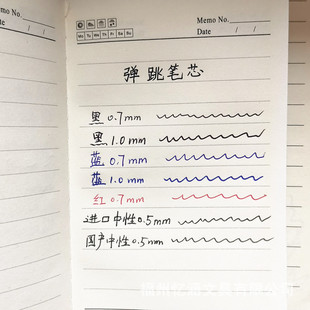 mo No.
Date /
Memo No.
Mo Tu We Th Fr Sa Su
Date / /
弹跳笔芯
黑 0.7mm
黑 1.0mm
蓝 0.7mm
蓝 1.0mm
红 0.7mm
进口中性0.5mm
国产中性0.5mm